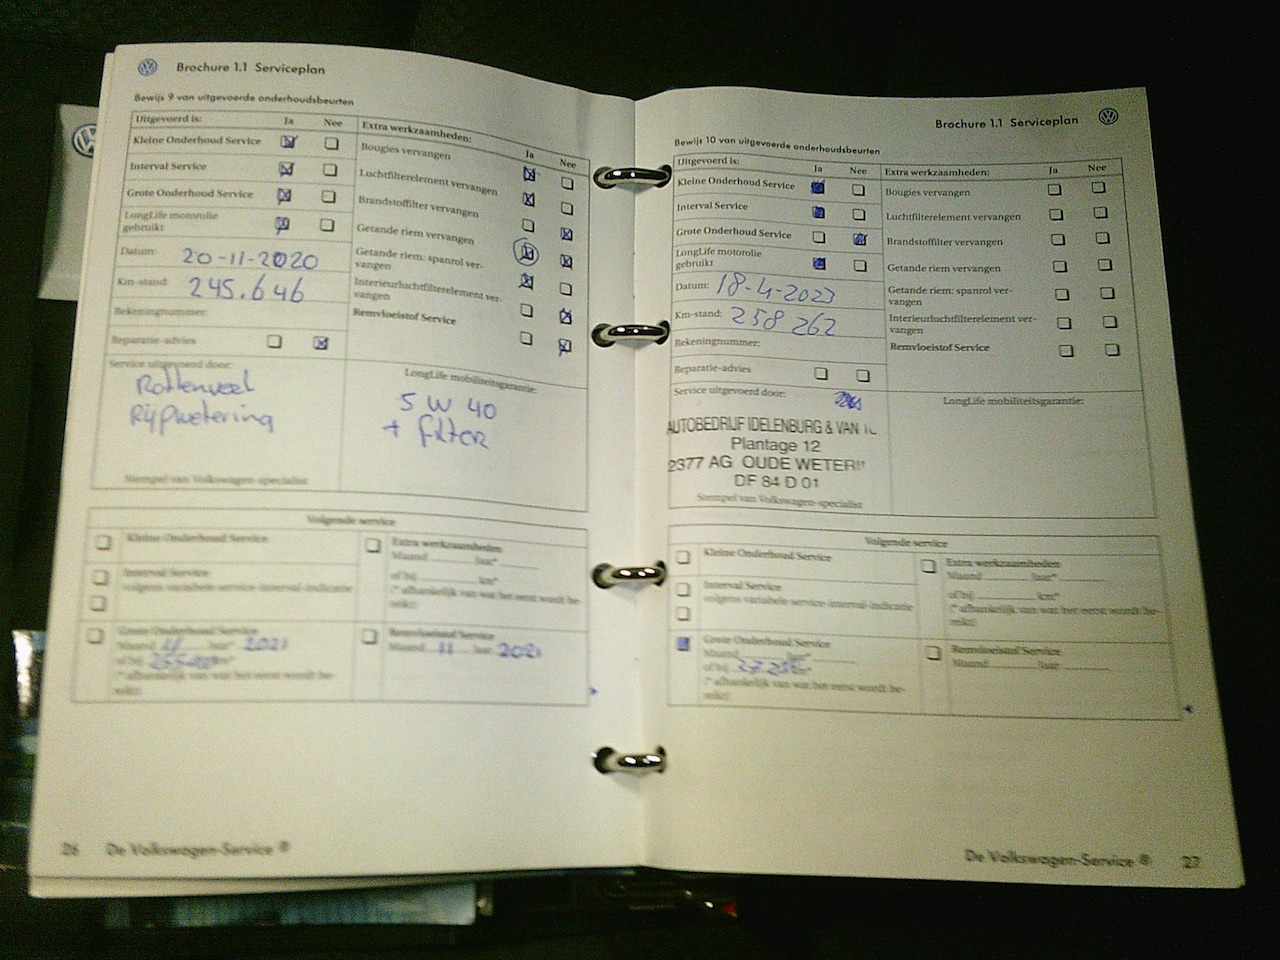 Brochure 1.1 Serviceplan
Bewijs 9 van uitgevoerde onderhoudsbeurten
Uitgevoerd is: Ja Nee
Kleine Onderhoud Service
Interval Service
Grote Onderhoud Service
LongLife motorolie
gebruikt
Datum: 20-11-2020
Km-stand: 245.646
Rekeningnummer:
Reparatie-advies
Service uitgevoerd door:
Rottenveel
Rijpwetering
Stempel van Volkswagen-specialist
Extra werkzaamheden: Ja Nee
Bougies vervangen
Luchtfilterelement vervangen
Brandstoffilter vervangen
Getande riem vervangen
Getande riem: spanrol ver-
vangen
Interieurluchtfilterelement ver-
vangen
Remvloeistof Service
LongLife mobiliteitsgarantie:
5 W 40
+ filter
Volgende service
Kleine Onderhoud Service
Interval Service
volgens variabele-service-interval-indicatie
Grote Onderhoud Service
Maand 11 Jaar* 2021
of bij km*
(* afhankelijk van wat het eerst wordt be-
reikt)
Extra werkzaamheden
Maand Jaar*
of bij km*
(* afhankelijk van wat het eerst wordt be-
reikt)
Remvloeistof Service
Maand 11 Jaar 2021
26 De Volkswagen-Service ®
Brochure 1.1 Serviceplan
Bewijs 10 van uitgevoerde onderhoudsbeurten
Uitgevoerd is: Ja Nee
Kleine Onderhoud Service
Interval Service
Grote Onderhoud Service
LongLife motorolie
gebruikt
Datum: 18-4-2023
Km-stand: 258 262
Rekeningnummer:
Reparatie-advies
Service uitgevoerd door:
AUTOBEDRIJF IDELENBURG & VAN
Plantage 12
2377 AG OUDE WETER
DF 84 D 01
Stempel van Volkswagen-specialist
Extra werkzaamheden: Ja Nee
Bougies vervangen
Luchtfilterelement vervangen
Brandstoffilter vervangen
Getande riem vervangen
Getande riem: spanrol ver-
vangen
Interieurluchtfilterelement ver-
vangen
Remvloeistof Service
LongLife mobiliteitsgarantie:
Volgende service
Kleine Onderhoud Service
Interval Service
volgens variabele-service-interval-indicatie
Grote Onderhoud Service
Maand Jaar*
of bij km*
(* afhankelijk van wat het eerst wordt be-
reikt)
Extra werkzaamheden
Maand Jaar*
of bij km*
(* afhankelijk van wat het eerst wordt be-
reikt)
Remvloeistof Service
Maand Jaar
De Volkswagen-Service ® 27